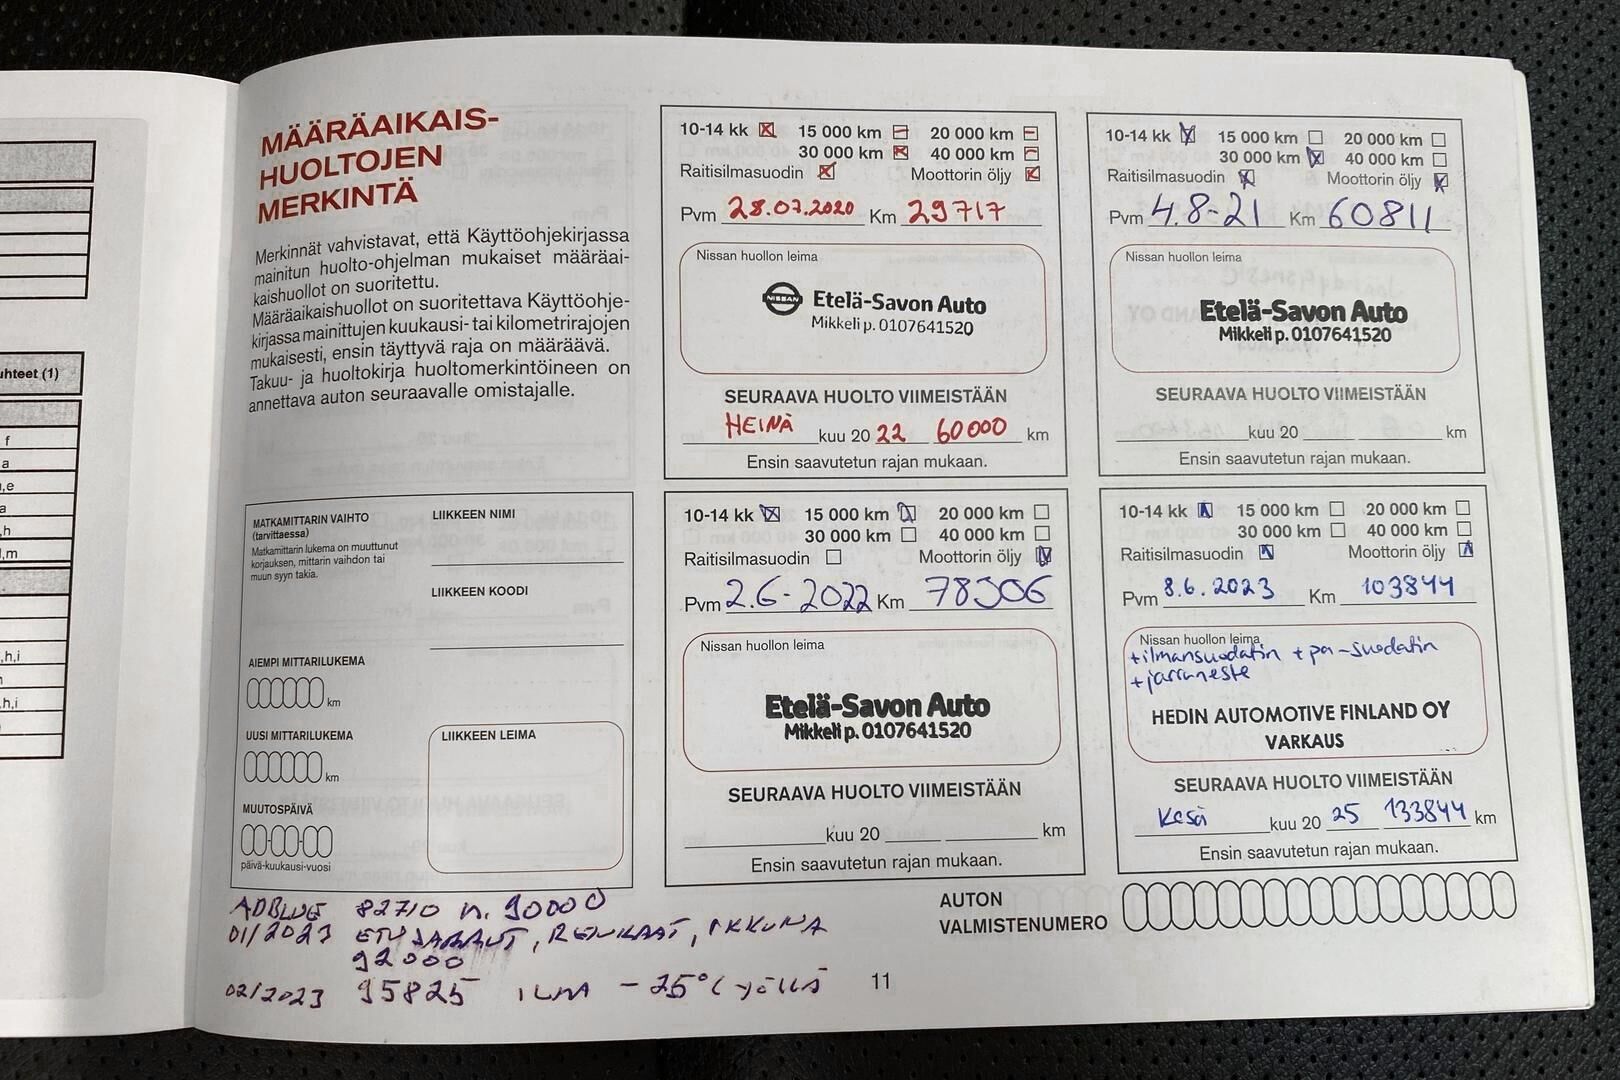 MÄÄRÄAIKAIS-
HUOLTOJEN
MERKINTÄ
Merkinnät vahvistavat, että Käyttöohjekirjassa
mainitun huolto-ohjelman mukaiset määräai-
kaishuollot on suoritettu.
Määräaikaishuollot on suoritettava Käyttöohje-
kirjassa mainittujen kuukausi- tai kilometrirajojen
mukaisesti, ensin täyttyvä raja on määräävä.
Takuu- ja huoltokirja huoltomerkintöineen on
annettava auton seuraavalle omistajalle.
10-14 kk 15 000 km 20 000 km
30 000 km 40 000 km
Raitisilmasuodin Moottorin öljy
Pvm 28.07.2020 Km 29717
Nissan huollon leima
NISSAN Etelä-Savon Auto
Mikkeli p. 0107641520
SEURAAVA HUOLTO VIIMEISTÄÄN
HEINÄ kuu 20 22 60000 km
Ensin saavutetun rajan mukaan.
10-14 kk 15 000 km 20 000 km
30 000 km 40 000 km
Raitisilmasuodin Moottorin öljy
Pvm 4.8-21 Km 60811
Nissan huollon leima
Etelä-Savon Auto
Mikkeli p. 0107641520
SEURAAVA HUOLTO VIIMEISTÄÄN
kuu 20 km
Ensin saavutetun rajan mukaan.
uhteet (1)
f
a
,e
a
,h
,m
,h,i
,h,i
MATKAMITTARIN VAIHTO
(tarvittaessa)
Matkamittarin lukema on muuttunut
korjauksen, mittarin vaihdon tai
muun syyn takia.
LIIKKEEN NIMI
LIIKKEEN KOODI
AIEMPI MITTARILUKEMA
km
UUSI MITTARILUKEMA
km
MUUTOSPÄIVÄ
päivä-kuukausi-vuosi
LIIKKEEN LEIMA
10-14 kk 15 000 km 20 000 km
30 000 km 40 000 km
Raitisilmasuodin Moottorin öljy
Pvm 2.6-2022 Km 78306
Nissan huollon leima
Etelä-Savon Auto
Mikkeli p. 0107641520
SEURAAVA HUOLTO VIIMEISTÄÄN
kuu 20 km
Ensin saavutetun rajan mukaan.
10-14 kk 15 000 km 20 000 km
30 000 km 40 000 km
Raitisilmasuodin Moottorin öljy
Pvm 8.6.2023 Km 103844
Nissan huollon leima
+ilmansuodatin +pa-suodatin
+jarruneste
HEDIN AUTOMOTIVE FINLAND OY
VARKAUS
SEURAAVA HUOLTO VIIMEISTÄÄN
Kesä kuu 20 25 133844 km
Ensin saavutetun rajan mukaan.
AUTON
VALMISTENUMERO
ADBLUE 82710 n. 90000
01/2023 ETUJARRUT, RENKAAT, IKKUNA
92000
02/2023 95825 ILMA -25°C YÖLLÄ
11